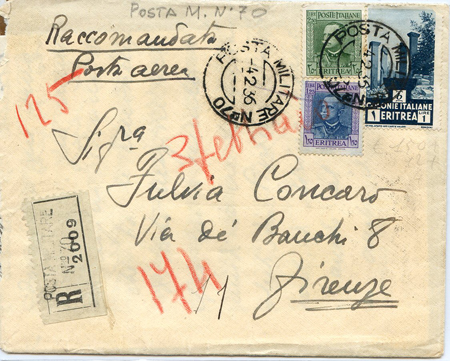 POSTA M. N° 70
Raccomandata
Posta aerea
POSTA MILITARE N° 70
4.2.36
POSTE ITALIANE
ERITREA
POSTA MILITARE N° 70
4.2.36
COLONIE ITALIANE
1 ERITREA 1
ERITREA
125
3 febbraio
Sig.ra
Fulvia Concaro
Via dé Banchi 8
174
Firenze
POSTA MILITARE
N° 70
R 2009